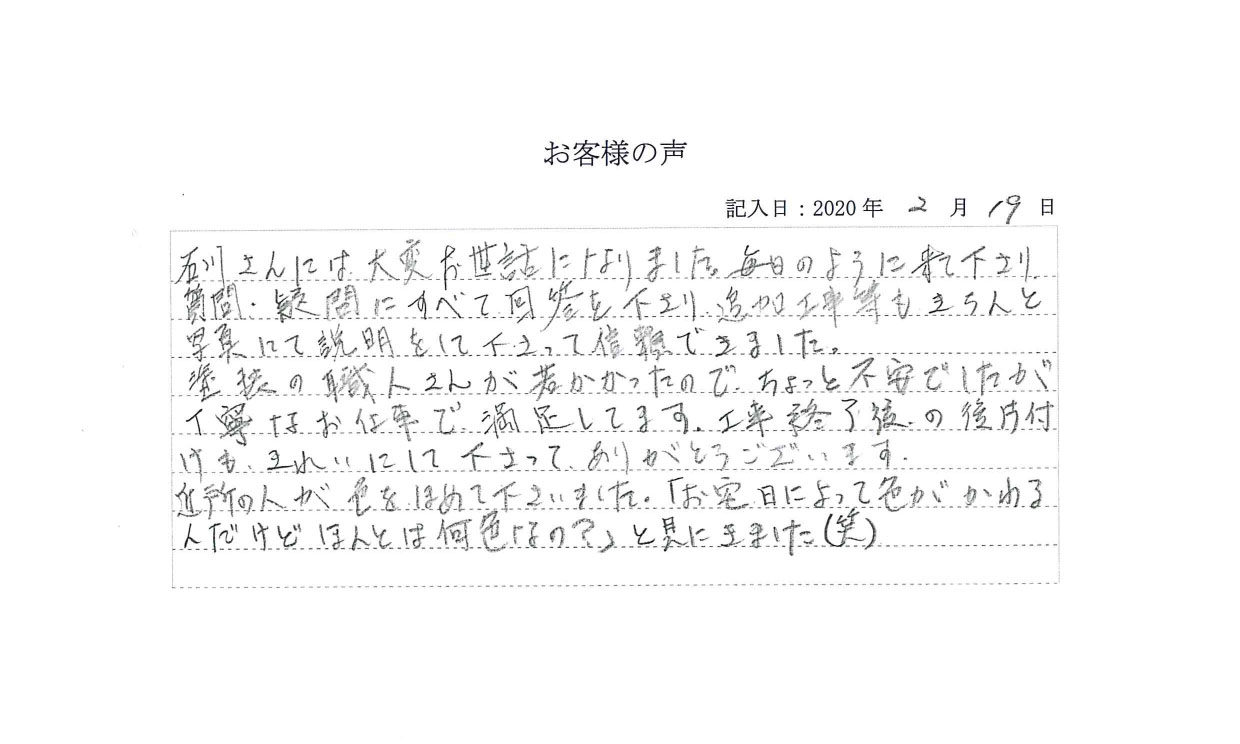 お客様の声
記入日：2020年 2月 19日
石川さんには大変お世話になりました。毎日のように来て下さり、
質問・疑問にすべて回答を下さり、追加工事等もきちんと
写真にて説明をして下さって信頼できました。
塗装の職人さんが若かかったので、ちょっと不安でしたが
丁寧なお仕事で、満足してます。工事終了後の後片付
けも、きれいにして下さって、ありがとうございます。
近所の人が色をほめて下さいました。「お宅日によって色がかわる
んだけどほんとは何色なの？」と見にきました(笑)